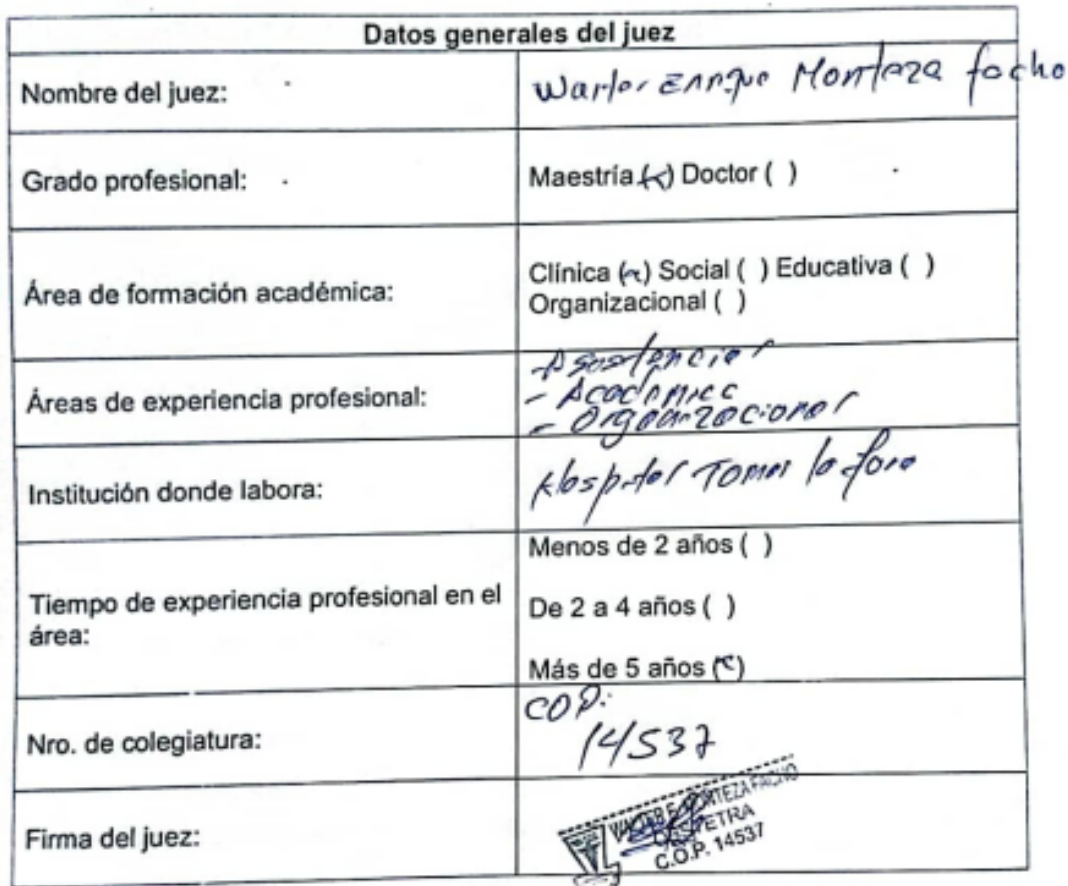 Datos generales del juez
Nombre del juez:
Walter Enrique Monteza facho
Grado profesional:
Maestría (x) Doctor ( )
Área de formación académica:
Clínica (x) Social ( ) Educativa ( )
Organizacional ( )
Áreas de experiencia profesional:
- Asistencial
- Académica
- Organizacional
Institución donde labora:
Hospital Tomas la fora
Tiempo de experiencia profesional en el
área:
Menos de 2 años ( )
De 2 a 4 años ( )
Más de 5 años (x)
Nro. de colegiatura:
COP:
14537
Firma del juez:
WALTER E. MONTEZA FACHO
OBSTETRA
C.O.P. 14537